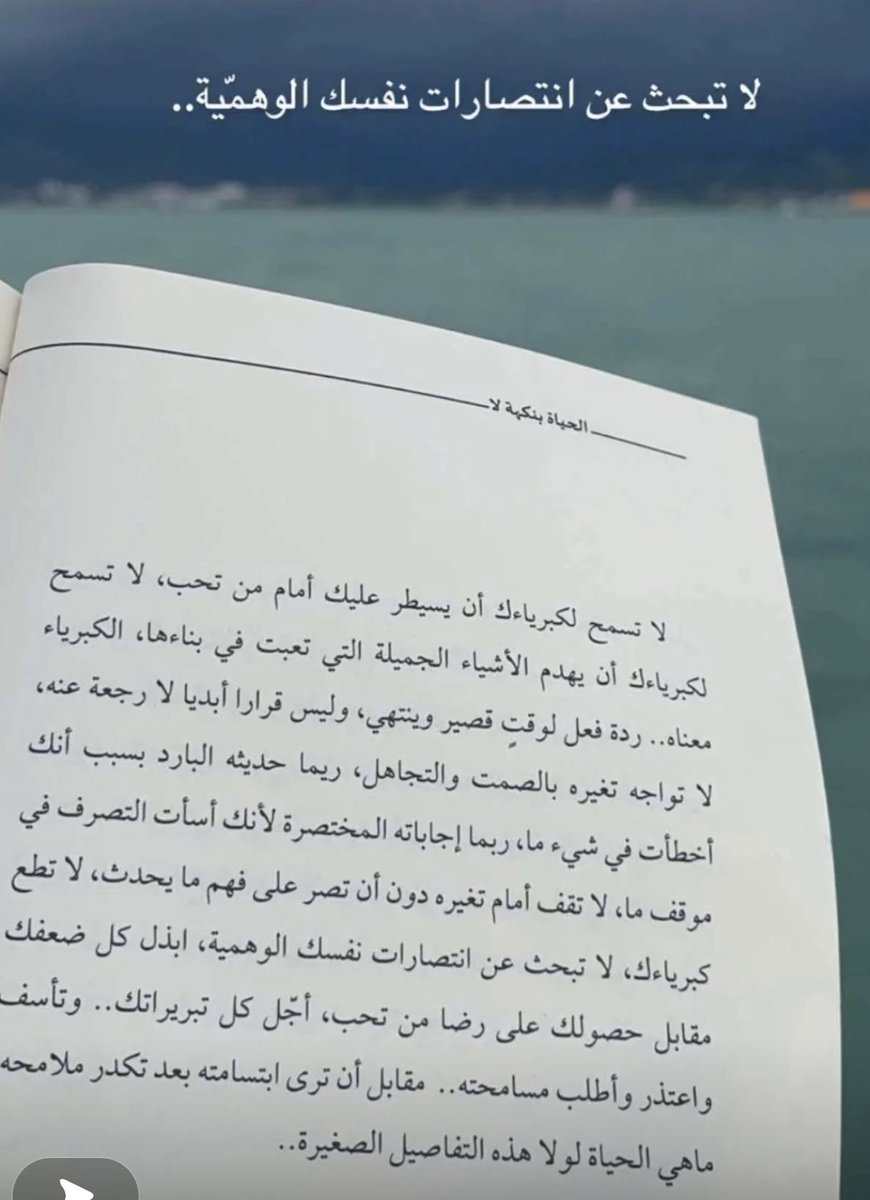 لا تبحث عن انتصارات نفسك الوهميّة..
الحياة بنكهة لا
لا تسمح لكبرياءك أن يسيطر عليك أمام من تحب، لا تسمح
لكبرياءك أن يهدم الأشياء الجميلة التي تعبت في بناءها، الكبرياء
معناه.. ردة فعل لوقتٍ قصير وينتهي، وليس قرارا أبديا لا رجعة عنه،
لا تواجه تغيره بالصمت والتجاهل، ربما حديثه البارد بسبب أنك
أخطأت في شيء ما، ربما إجاباته المختصرة لأنك أسأت التصرف في
موقف ما، لا تقف أمام تغيره دون أن تصر على فهم ما يحدث، لا تطع
كبرياءك، لا تبحث عن انتصارات نفسك الوهمية، ابذل كل ضعفك
مقابل حصولك على رضا من تحب، أجّل كل تبريراتك.. وتأسف
واعتذر وأطلب مسامحته.. مقابل أن ترى ابتسامته بعد تكدر ملامحه
ماهي الحياة لولا هذه التفاصيل الصغيرة..